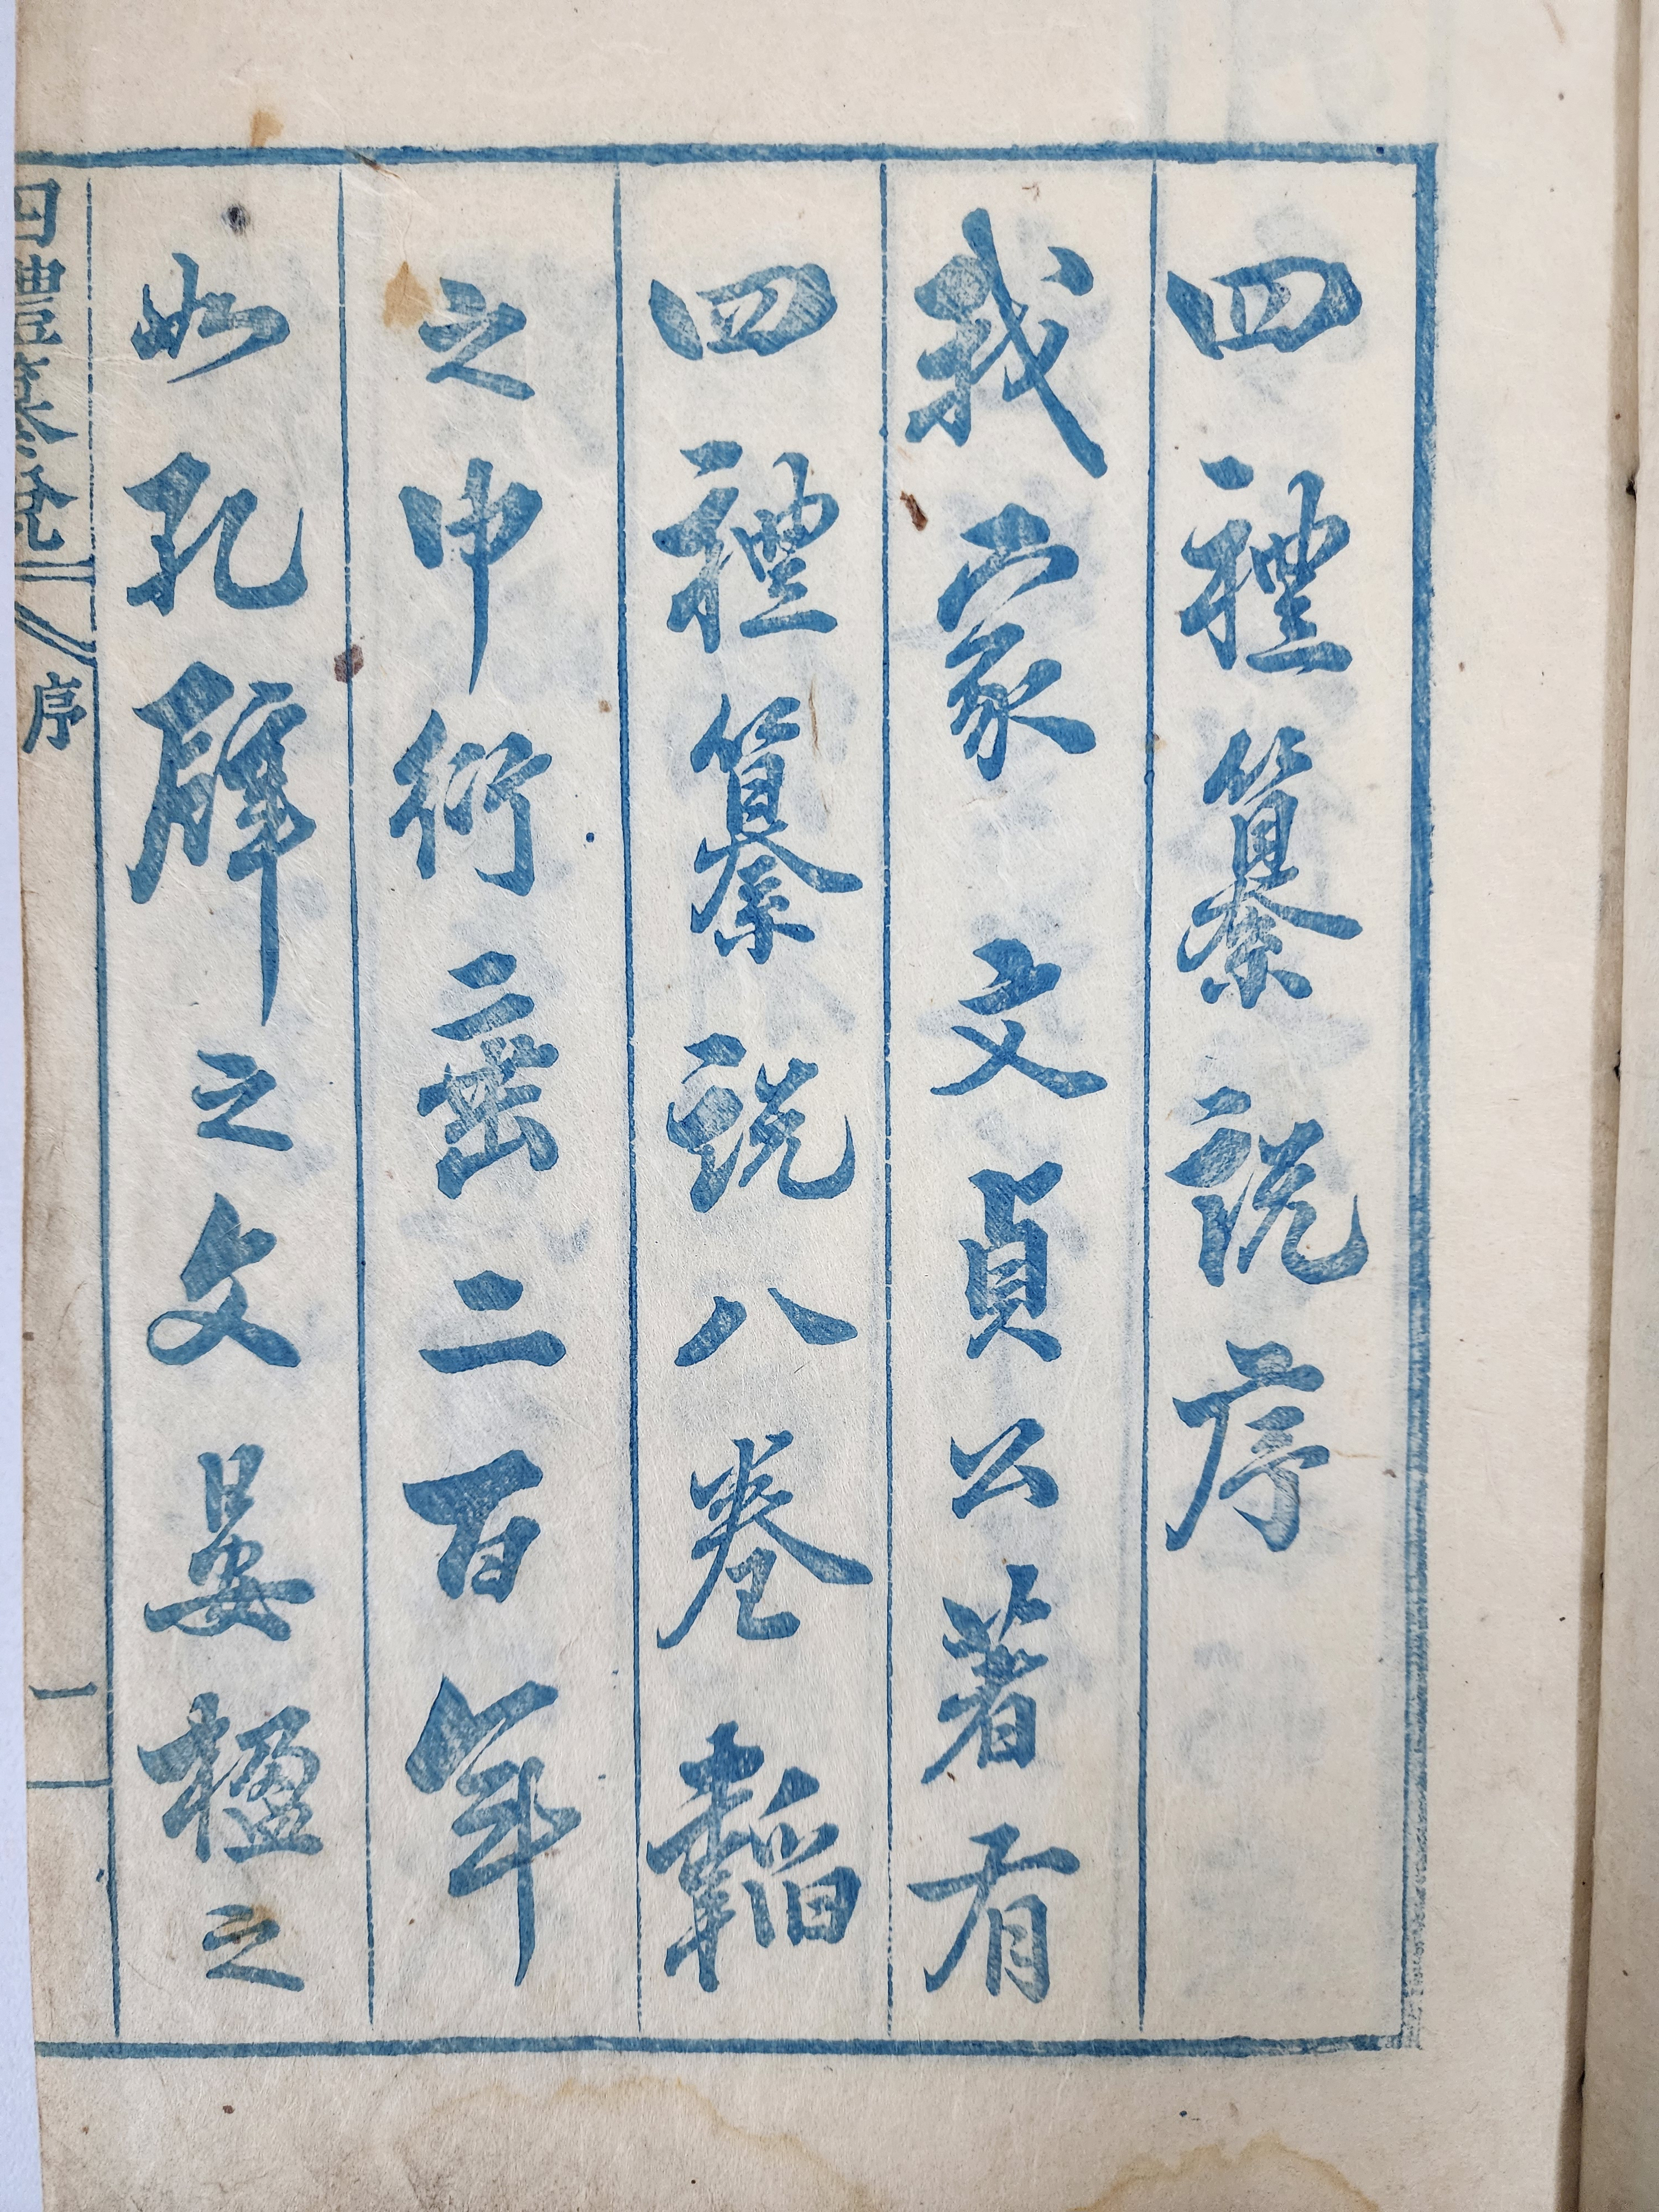 四禮纂說序
我家文貞公著有
四禮纂說八卷韜
之巾衍垂二百年
如孔壁之文晏楹之
四禮纂說 序 一